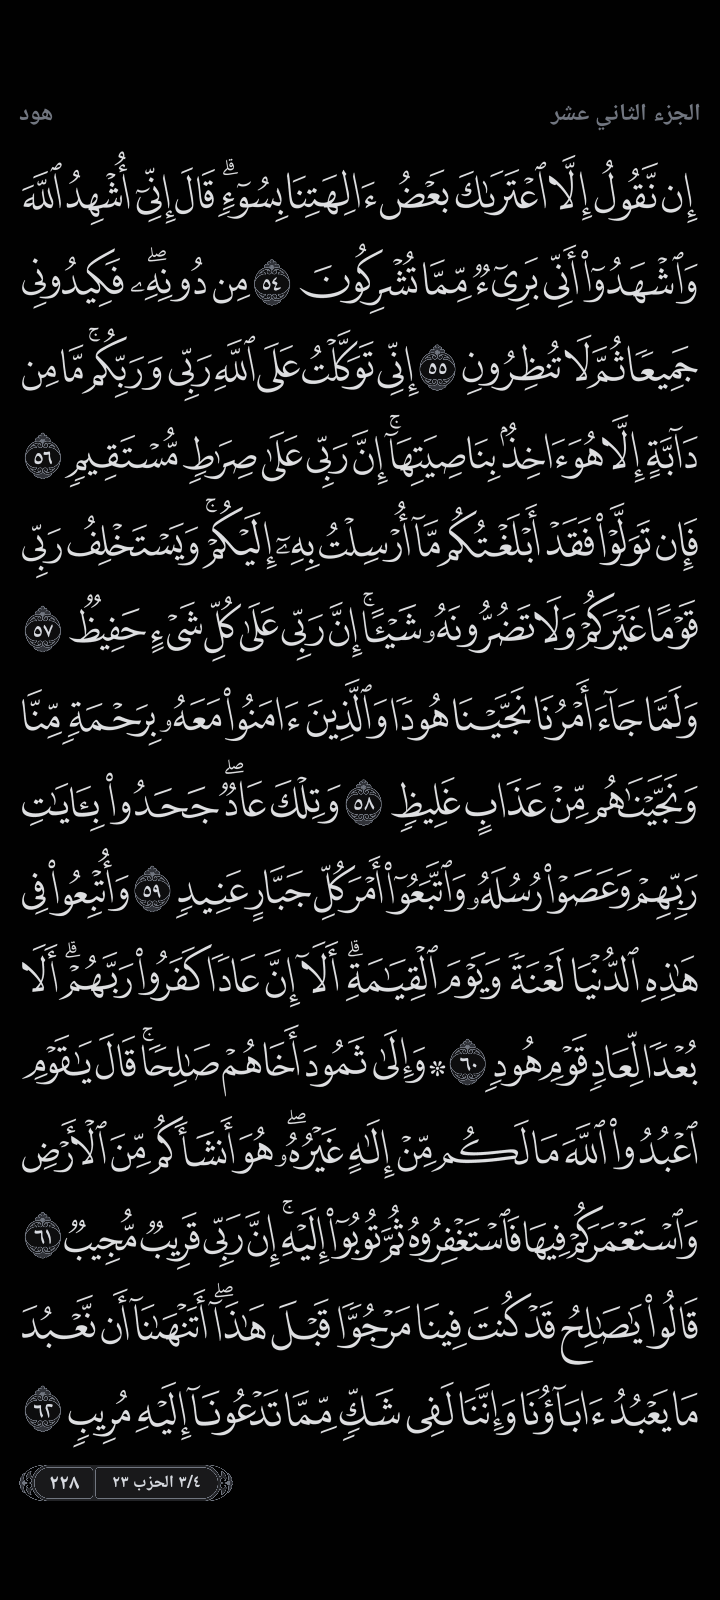 الجزء الثاني عشر
هود
إِن نَّقُولُ إِلَّا ٱعْتَرَىٰكَ بَعْضُ ءَالِهَتِنَا بِسُوٓءٍۗ قَالَ إِنِّىٓ أُشْهِدُ ٱللَّهَ
وَٱشْهَدُوٓا۟ أَنِّى بَرِىٓءٌ مِّمَّا تُشْرِكُونَ ٥٤ مِن دُونِهِۦۖ فَكِيدُونِى
جَمِيعًا ثُمَّ لَا تُنظِرُونِ ٥٥ إِنِّى تَوَكَّلْتُ عَلَى ٱللَّهِ رَبِّى وَرَبِّكُمۚ مَّا مِن
دَآبَّةٍ إِلَّا هُوَ ءَاخِذٌۢ بِنَاصِيَتِهَآۚ إِنَّ رَبِّى عَلَىٰ صِرَٰطٍ مُّسْتَقِيمٍ ٥٦
فَإِن تَوَلَّوْا۟ فَقَدْ أَبْلَغْتُكُم مَّآ أُرْسِلْتُ بِهِۦٓ إِلَيْكُمْۚ وَيَسْتَخْلِفُ رَبِّى
قَوْمًا غَيْرَكُمْ وَلَا تَضُرُّونَهُۥ شَيْـًٔاۚ إِنَّ رَبِّى عَلَىٰ كُلِّ شَىْءٍ حَفِيظٌ ٥٧
وَلَمَّا جَآءَ أَمْرُنَا نَجَّيْنَا هُودًا وَٱلَّذِينَ ءَامَنُوا۟ مَعَهُۥ بِرَحْمَةٍ مِّنَّا
وَنَجَّيْنَٰهُم مِّنْ عَذَابٍ غَلِيظٍ ٥٨ وَتِلْكَ عَادٌۖ جَحَدُوا۟ بِـَٔايَٰتِ
رَبِّهِمْ وَعَصَوْا۟ رُسُلَهُۥ وَٱتَّبَعُوٓا۟ أَمْرَ كُلِّ جَبَّارٍ عَنِيدٍ ٥٩ وَأُتْبِعُوا۟ فِى
هَٰذِهِ ٱلدُّنْيَا لَعْنَةً وَيَوْمَ ٱلْقِيَٰمَةِۗ أَلَآ إِنَّ عَادًا كَفَرُوا۟ رَبَّهُمْۗ أَلَا
بُعْدًا لِّعَادٍ قَوْمِ هُودٍ ٦٠ ۞ وَإِلَىٰ ثَمُودَ أَخَاهُمْ صَٰلِحًاۚ قَالَ يَٰقَوْمِ
ٱعْبُدُوا۟ ٱللَّهَ مَا لَكُم مِّنْ إِلَٰهٍ غَيْرُهُۥۖ هُوَ أَنشَأَكُم مِّنَ ٱلْأَرْضِ
وَٱسْتَعْمَرَكُمْ فِيهَا فَٱسْتَغْفِرُوهُ ثُمَّ تُوبُوٓا۟ إِلَيْهِۚ إِنَّ رَبِّى قَرِيبٌ مُّجِيبٌ ٦١
قَالُوا۟ يَٰصَٰلِحُ قَدْ كُنتَ فِينَا مَرْجُوًّا قَبْلَ هَٰذَآۖ أَتَنْهَىٰنَآ أَن نَّعْبُدَ
مَا يَعْبُدُ ءَابَآؤُنَا وَإِنَّنَا لَفِى شَكٍّ مِّمَّا تَدْعُونَآ إِلَيْهِ مُرِيبٍ ٦٢
٣/٤ الحزب ٢٣
٢٢٨